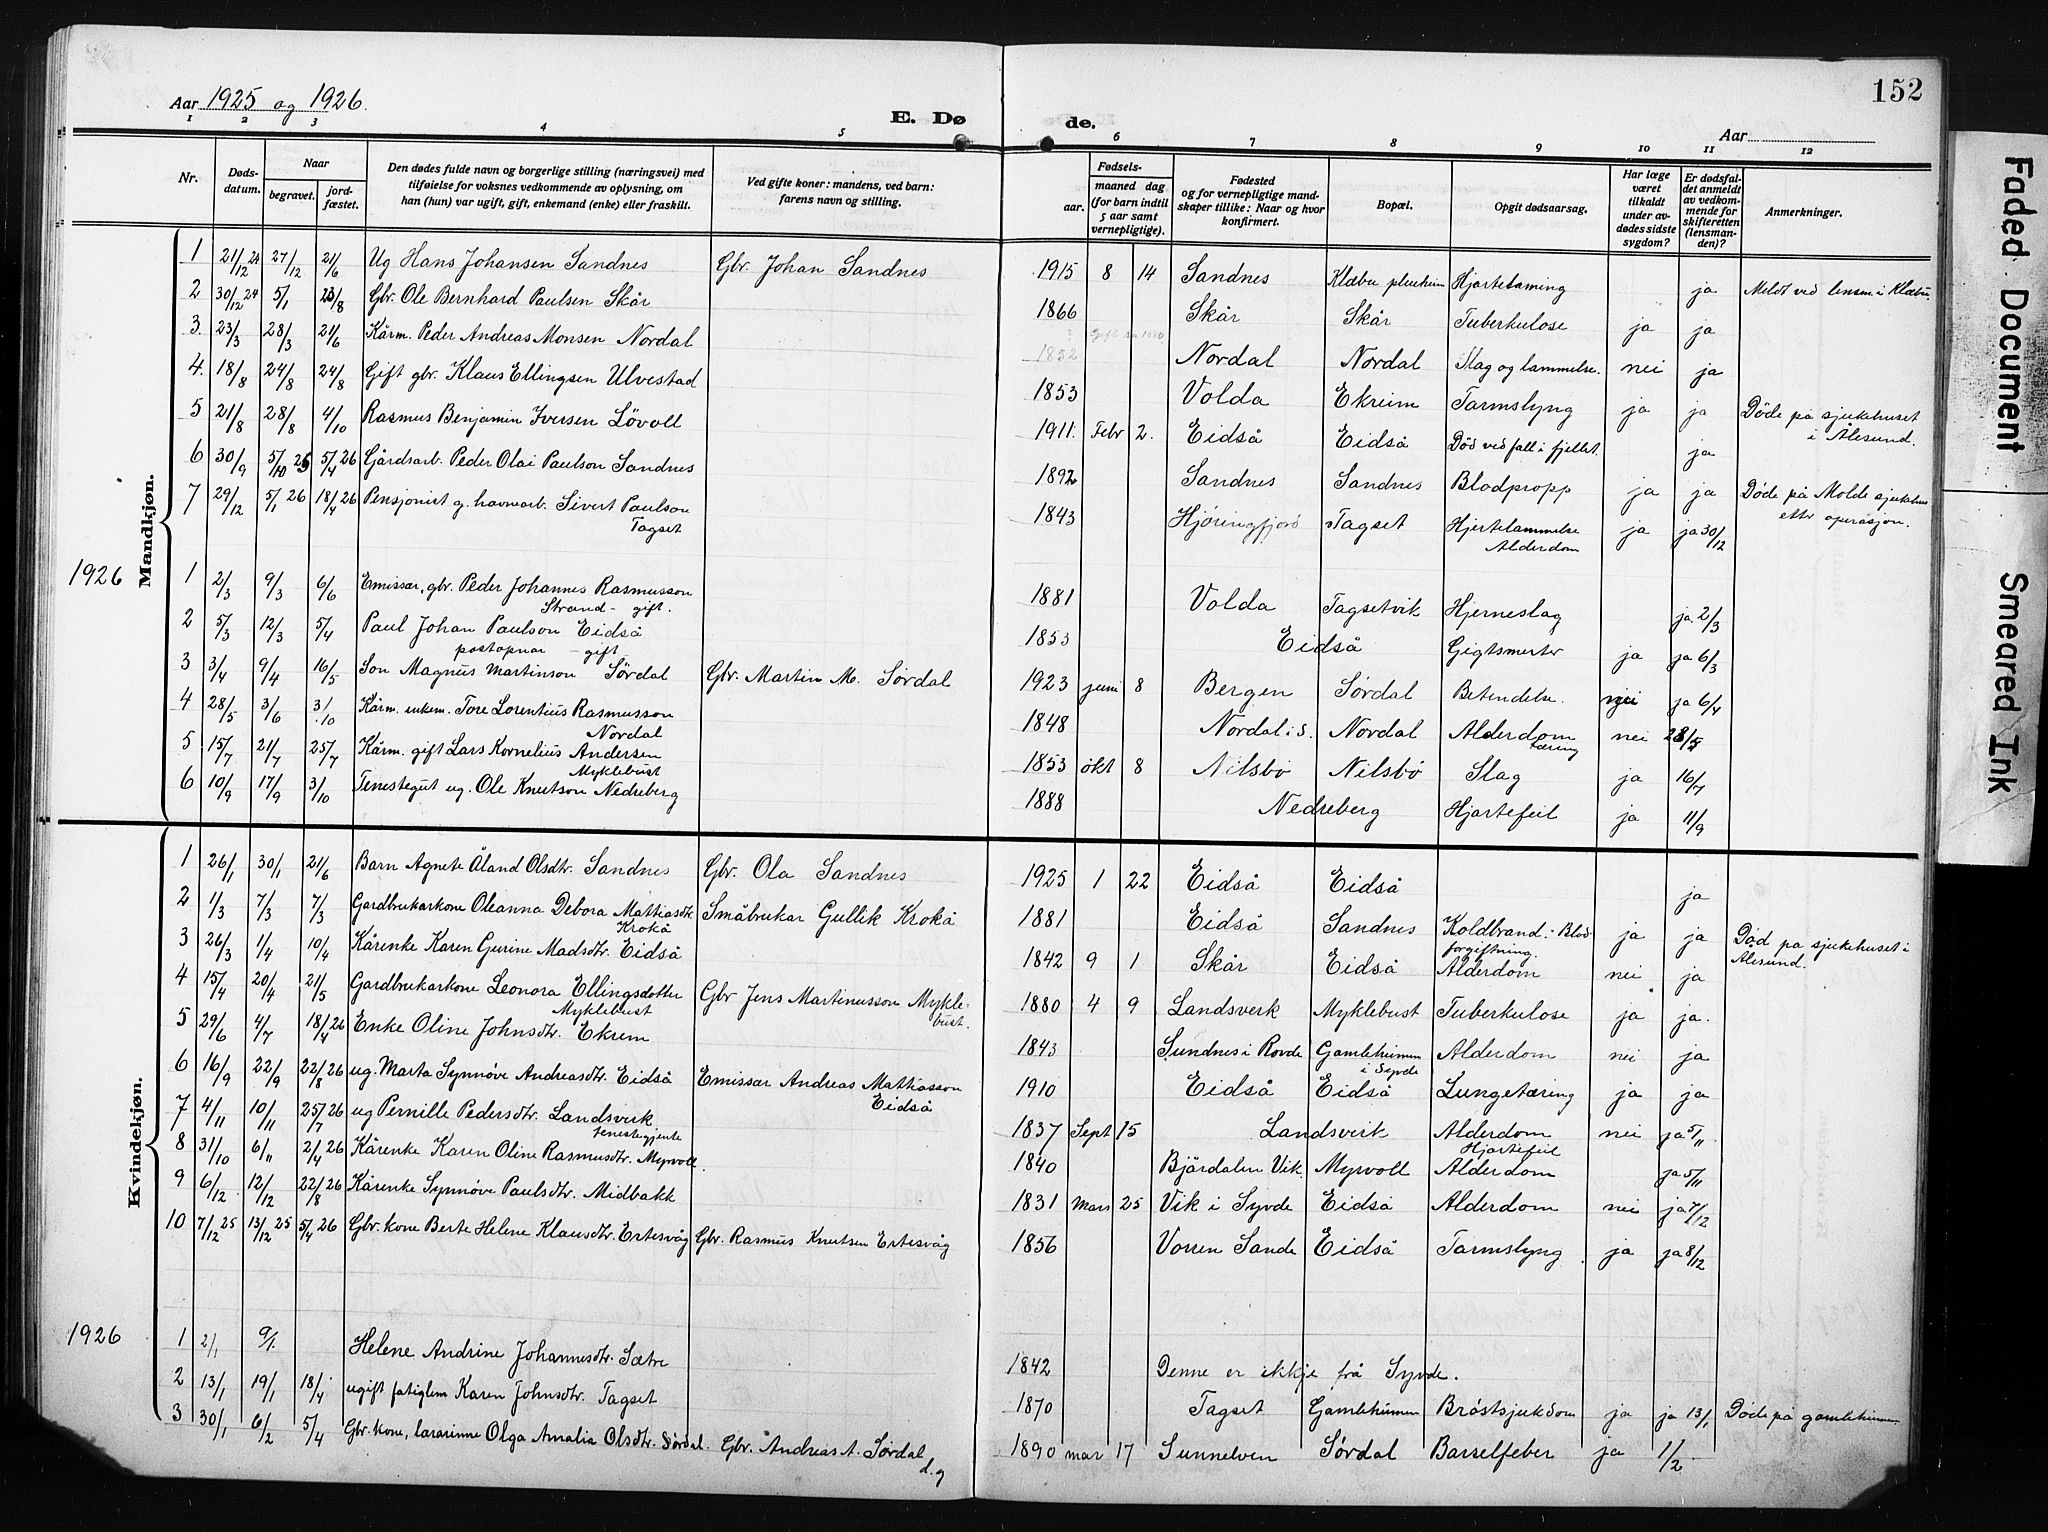 152
Aar 1925 og 1926.
E. Dø de.
Aar
1 2 3 4 5 6 7 8 9 10 11 12
Nr.
Døds-
datum.
Naar
begravet.
jord-
fæstet.
Den dødes fulde navn og borgerlige stilling (næringsvei) med
tilføielse for voksnes vedkommende av oplysning, om
han (hun) var ugift, gift, enkemand (enke) eller fraskilt.
Ved gifte koner: mandens, ved barn:
farens navn og stilling.
Fødsels-
aar.
maaned dag
(for barn indtil
5 aar samt
vernepligtige).
Fødested
og for vernepligtige mand-
skaper tillike: Naar og hvor
konfirmert.
Bopæl.
Opgit dødsaarsag.
Har læge
været
tilkaldt
under av-
dødes sidste
sygdom?
Er dødsfal-
det anmeldt
av vedkom-
mende for
skifteretten
(lensman-
den)?
Anmerkninger.
Mandkjøn.
1 21/12 24 27/12 21/6 Ug Hans Johansen Sandnes Gbr. Johan Sandnes 1915 8 14 Sandnes Klæbu pleieheim Hjartelaming ja Meldt ved lensm. i Klæbu.
2 30/12 24 5/1 23/8 Gbr. Ole Bernhard Paulsen Skår 1866 Skår Skår Tuberkulose ja ja
3. 23/3 28/3 21/6 Kårm. Peder Andreas Monsen Nordal 1852 Nordal Nordal Slag og lammelse. nei ja
4. 18/8 24/8 24/8 Gift gbr. Klaus Ellingsen Ulvestad 1853 Volda Ekreim Tarmslyng ja ja Døde på sjukehuset
i Ålesund.
5 21/8 28/8 4/10 Rasmus Benjamin Iversen Lövoll 1911. Febr 2. Eidså Eidså Död ved fall i fjellet. ja
6 30/9 5/10 25 5/4 26 Gårdsarb. Peder Olai Paulson Sandnes 1892 Sandnes Sandnes Blodpropp ja ja Døde på Molde sjukehus
etter operasjon.
7 29/12 5/1 26 18/4 26 Pensjonist g. havnearb. Sivert Paulson
Tagset 1843 Hjøringfjord Tagset Hjertelammelse
Alderdom ja ja 30/12
1926
1 2/3 9/3 6/6 Emissær, gbr. Peder Johannes Rasmusson
Strand - gift. 1881 Volda Tagsetvik Hjerneslag ja 2/3
2 5/3 12/3 5/4 Paul Johan Paulson Eidså
postopnar - gift 1853 Eidså Gigtsmerter ja ja 6/3
3 3/4 9/4 16/5 Son Magnus Martinson Sørdal Gbr. Martin M. Sørdal 1923 juni 8 Bergen Sørdal Betendelse. nei ja 6/4
4 28/5 3/6 3/10 Kårm. enkem. Tore Lorentius Rasmusson
Nordal 1848 Nordal i S. Nordal Alderdom
tæring nei 28/5
5 15/7 21/7 25/7 Kårm. gift Lars Kornelius Andersen
Myklebust 1853 okt 8 Nilsbö Nilsbö Slag ja 16/7
6 10/9 17/9 3/10 Tenestegut ug. Ole Knutson Nedreberg 1888 Nedreberg Hjartefeil ja 11/9
Kvindekjøn.
1 26/1 30/1 21/6 Barn Agnete Åland Olsdtr. Sandnes Gbr. Ola Sandnes 1925 1 22 Eidså Eidså ja
2 1/3 7/3 7/3 Gardbrukarkone Oleanna Debora Mattiasdtr.
Krokå Småbrukar Gullik Krokå 1881 Eidså Sandnes Koldbrand. - Blod-
forgiftning. ja ja Död på sjukehuset i
Ålesund.
3 26/3 1/4 10/4 Kårenke Karen Gurine Madsdtr. Eidså 1842 9 1 Skår Eidså Alderdom nei ja
4 15/4 20/4 21/5 Gardbrukarkone Leonora Ellingsdotter
Myklebust Gbr Jens Martinusson Mykle-
bust. 1880 4 9 Landsverk Myklebust Tuberkulose ja ja.
5 29/6 4/7 18/4 26 Enke Oline Johnsdtr. Ekrem 1843 Sundnes i Rovde Gamleheimen
i Syvde Alderdom nei ja
6 16/9 22/9 22/8 26 ug. Marta Synnöve Andreasdtr. Eidså Emissær Andreas Mattiasson
Eidså 1910 Eidså Eidså Lungetæring ja ja
7 4/11 10/11 25/7 26 ug Pernille Pedersdtr. Landsverk
tenestegjente 1837 Sept 15 Landsverk Alderdom
Hjartefeil nei ja 5/11
8 31/10 6/11 2/4 26 Kårenke Karen Oline Rasmusdtr. Myrvoll. 1840 Bjärdalen Vik. Myrvoll Alderdom ja 5/11
9 6/12 12/12 22/8 26 Kårenke Synnöve Paulsdtr. Midbakk 1831 Mars 25 Vik i Syvde Eidså Alderdom nei ja 7/12
10 7/12 25 13/12 25 5/4 26 Gbr. kone Berte Helene Klausdtr. Ertesvåg Gbr. Rasmus Knutsen Ertesvåg 1856 Vorren Sande Eidså Tarmslyng ja ja 8/12
1926
1 2/1 9/1. Helene Andrine Johannesdtr. Sætre 1842 Denne er ikkje frå Syvde.
2 13/1 19/1 18/4 ugift fatiglem Karen Johnsdtr. Tagset 1870 Tagset Gamleheimen Bröstsjukdom ja ja 13/1 Döde på gamleheimen
3 30/1 6/2 5/4 Gbr. kone, lærarinne Olga Amalia Olsdtr. Sørdal. Gbr. Andreas A. Sørdal
d.y 1890 mar 17 Sunnelven Sørdal Barselfeber ja 1/2
Faded Document
Smeared Ink